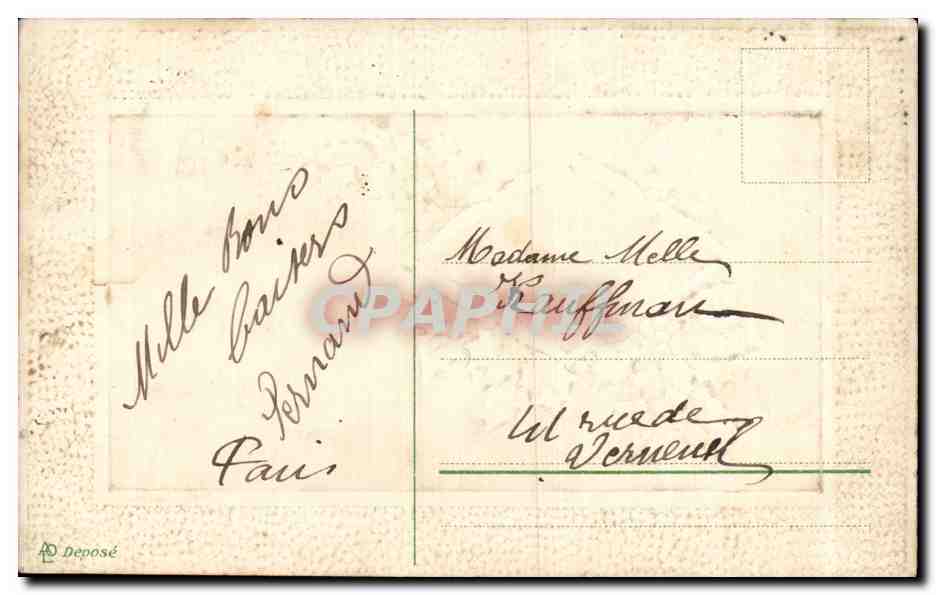 Mille Bons
baisers
Fernand
Paris
Madame Melle
Kauffman
rue de
Verneuil
CPAPHIL
Déposé